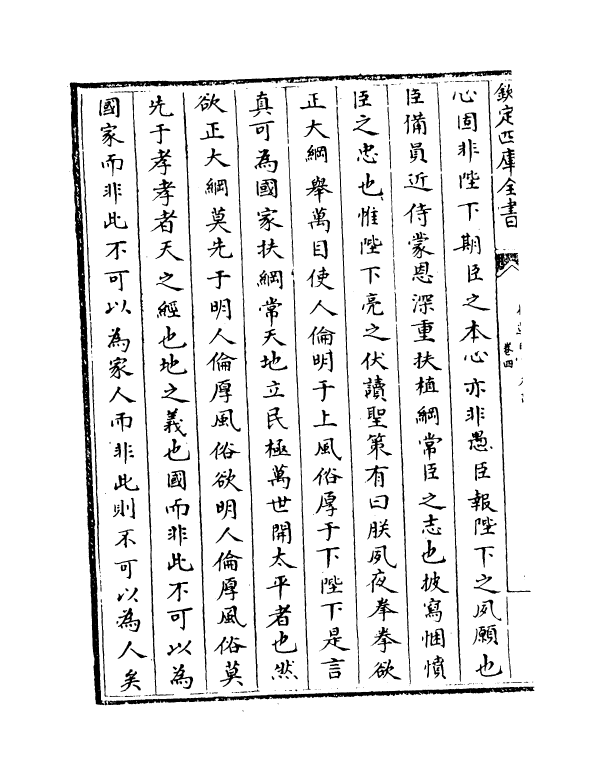 欽定四庫全書
卷四
心固非陛下期臣之本心亦非愚臣報陛下之夙願也
臣備員近侍蒙恩深重扶植綱常臣之志也披寫悃愊
臣之忠也惟陛下亮之伏讀聖策有曰朕夙夜拳拳欲
正大綱舉萬目使人倫明于上風俗厚于下陛下是言
真可為國家扶綱常天地立民極萬世開太平者也然
欲正大綱莫先于明人倫厚風俗欲明人倫厚風俗莫
先于孝孝者天之經也地之義也國而非此不可以為
國家而非此不可以為家人而非此則不可以為人矣